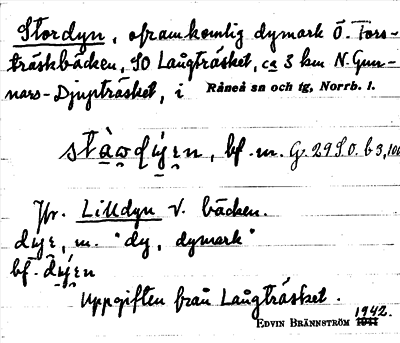 Stordyn, oframkomlig dymark Ö. Fors-
träskbäcken, SO Långträsket, ca 3 km N. Gun-
nars-Djupträsket, i Råneå sn och tg, Norrb. l.
bf. m. G. 29 S.O. b 3, 100
Jfr. Lilldyn V. bäcken.
dyę, m. "dy, dymark"
Uppgiften från Långträsket.
1942.
EDVIN BRÄNNSTRÖM 1941